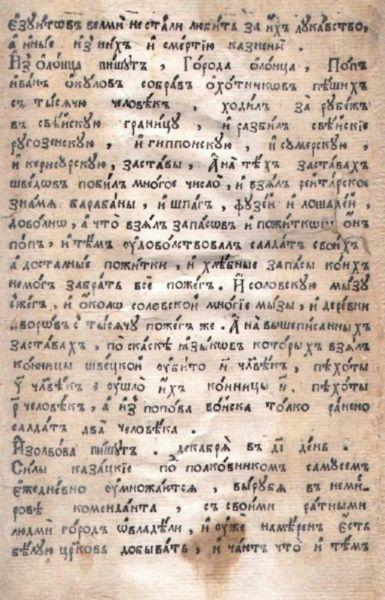 Єзуитовъ велми не стали любить за ихъ лукавство,
а иные изъ нихъ и смертїю казнены.
Изъ олонца пишутъ, Города олонца, Попъ
иванъ окуловъ собравъ охотниковъ пѣшихъ
съ тысячю человѣкъ, ходилъ за рубежъ
въ свѣйскую границу, и разбилъ свѣйскіе
ругозенскую, и гиппонскую, и сумерскую,
и керисурскую, заставы, А на тѣхъ заставахъ
шведовъ побилъ многое число, и взялъ рейтарское
знамя барабаны, и шпагъ, фузей и лошадей,
доволно, а что взялъ запасовъ и пожитковъ онъ
попъ, и тѣмъ удоволствовалъ салдатъ своихъ
а досталные пожитки, и хлѣбные запасы коихъ
немогъ забрать все пожегъ. И соловскую мызу
сжегъ, и около соловской многіе мызы, и деревни
дворовъ съ тысячу пожегъ же. А на вышеписанныхъ
заставахъ, по скаскѣ языковъ которыхъ взялъ
конницы швецкой убито н҃ члвѣкъ, пѣхоты
у҃ члвѣкъ, ушло ихъ конницы н҃, пѣхоты
р҃ человѣкъ, а изъ попова войска толко ранено
салдатъ два человѣка.
Изолвова пишутъ. декабря въ д҃і день.
Силы казацкіе по полковникомъ самусемъ
ежедневно умножаются, вырубя въ неми-
ровѣ коменданта, съ своими ратными
людми городъ овладѣли, и уже намѣренъ есть
бѣлую црковь добывать, и чаютъ что и тѣмъ